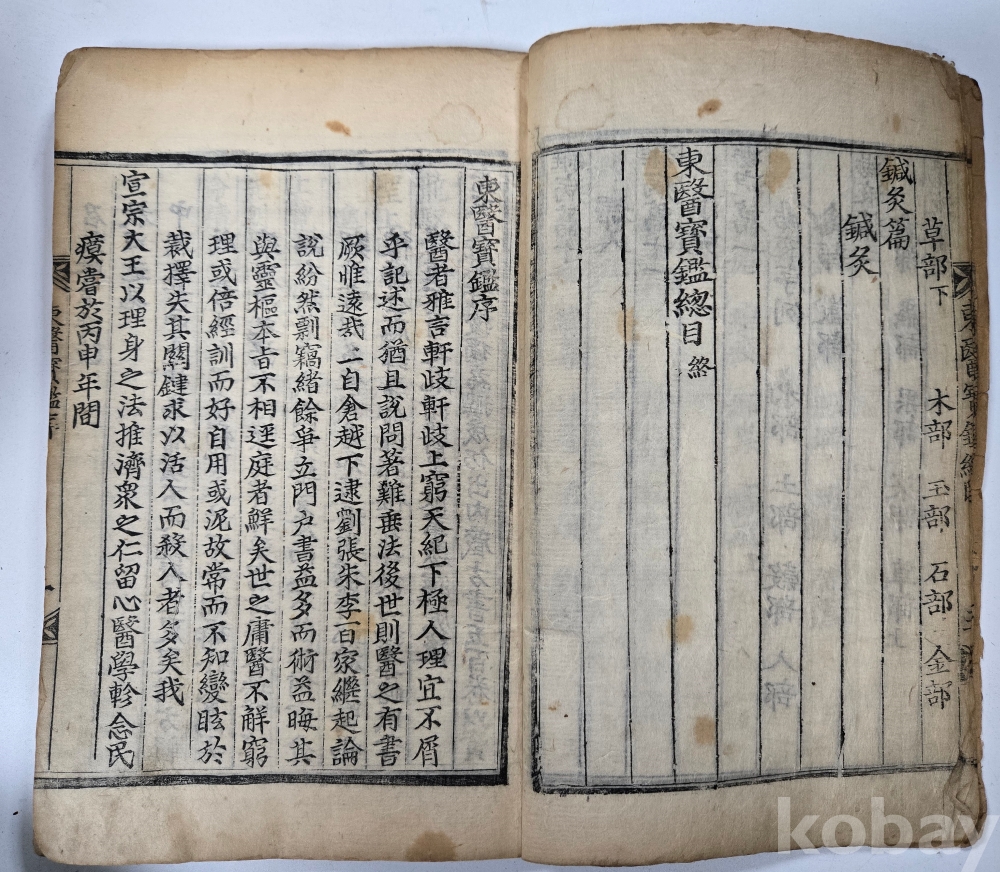 東醫寶鑑總目
草部下 木部 玉部 石部 金部
鍼灸篇
鍼灸
東醫寶鑑總目 終
東醫寶鑑序
醫者雅言軒歧軒歧上窮天紀下極人理宜不屑
乎記述而猶且說問著難垂法後世則醫之有書
厥惟遠哉一自倉越下逮劉張朱李百家繼起論
說紛然剽竊緖餘爭立門戶書益多而術益晦其
與靈樞本旨不相逕庭者鮮矣世之庸醫不解窮
理或倍經訓而好自用或泥故常而不知變眩於
裁擇失其關鍵求以活人而殺人者多矣我
宣宗大王以理身之法推濟衆之仁留心醫學軫念民
瘼嘗於丙申年間
東醫寶鑑序
kobay